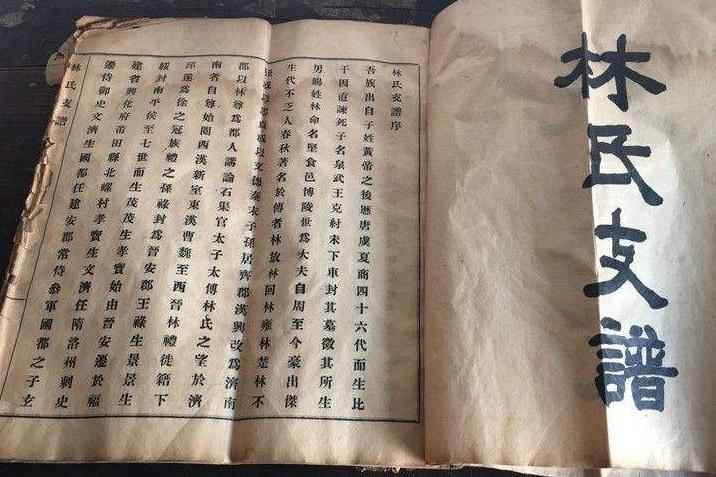 林氏支譜
林氏支譜序
吾族出自子姓黃帝之後歷唐虞夏商四十六代而生比
干因直諫死子名泉武王克紂未下車封其墓徵其所生
男賜姓林命名堅食邑博陵世爲大夫自周至今豪出傑
生代不乏人春秋著名於傳者林放林回林雍林楚林不
或以文德秦末子孫居齊郡漢興改爲濟南
郡以林尊爲郡人講論石渠官太子太傅林氏之望於濟
南者自尊始閱西漢新室東漢曹魏至西晉林禮徙籍下
邳遂爲徐之冠族禮之孫祿封爲晉安郡王祿生景景生
綏封南平侯至七世而生茂茂生孝寶始由晉安遷於福
建省興化府莆田縣北螺村孝寶生文濟任隋洛州刺史
遷侍御史文濟生國都任建安郡常侍參軍國都之子玄
林氏支譜